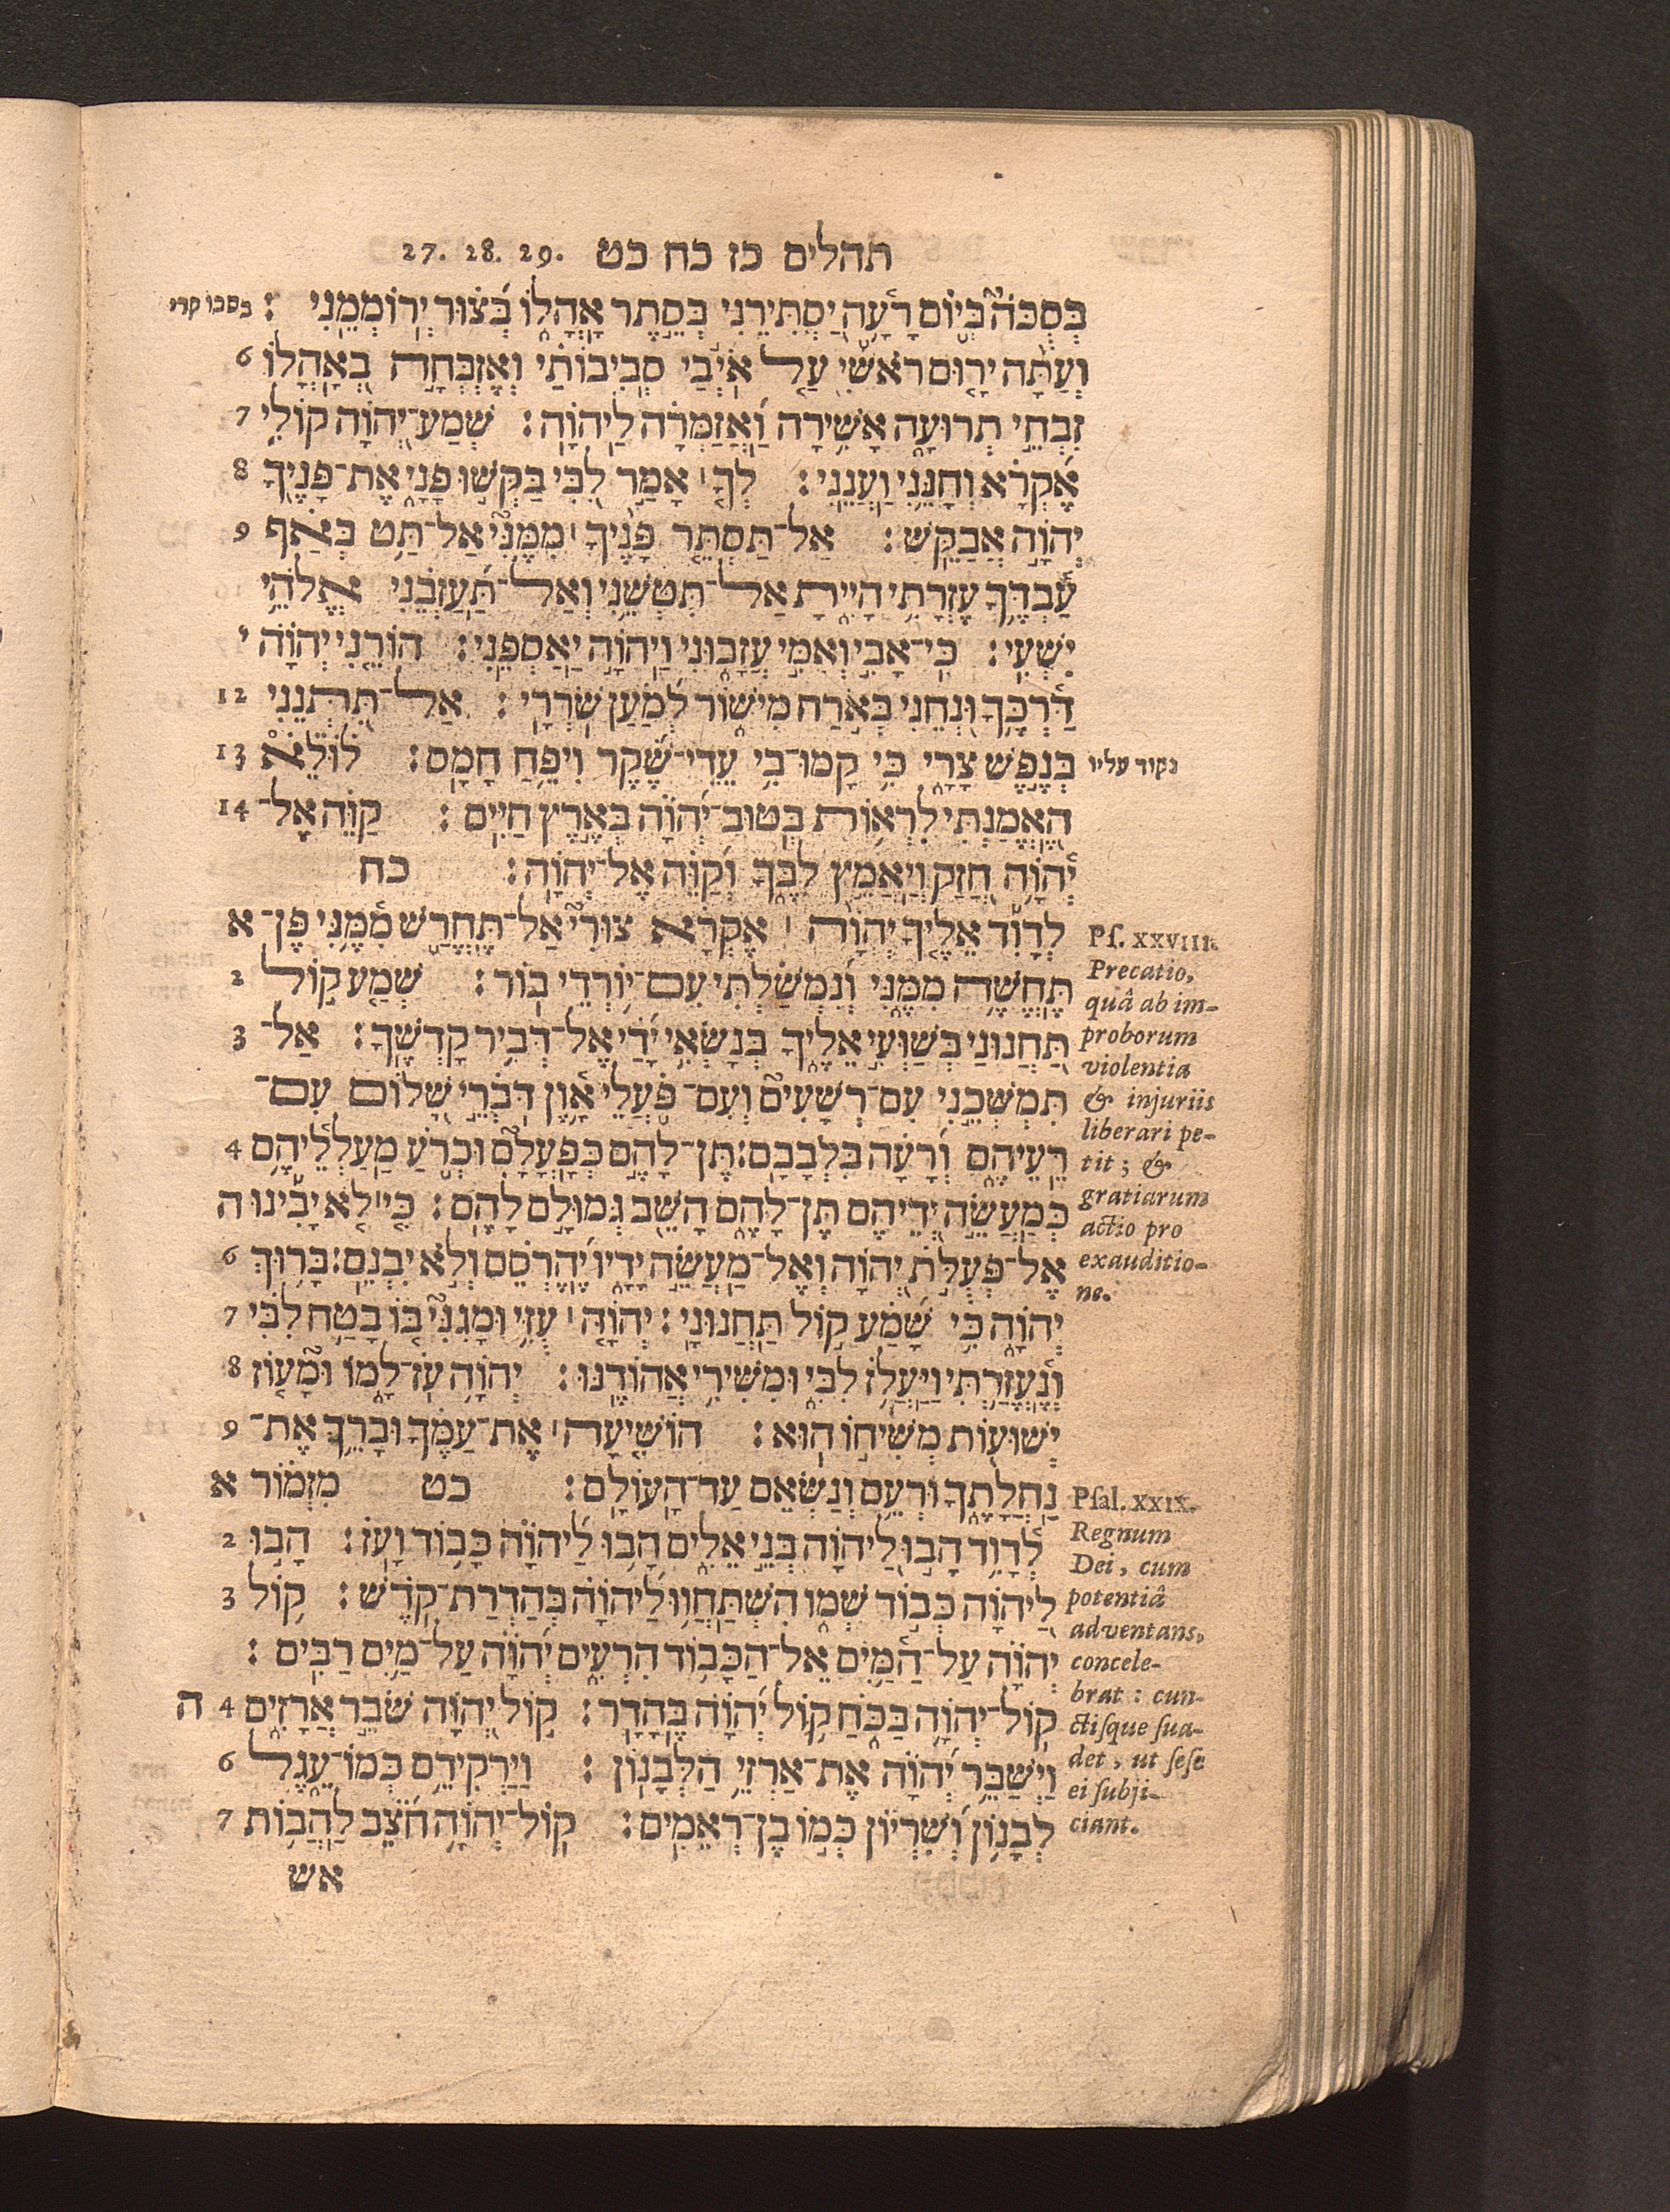 תהלים כז כח כט 27. 28. 29.
בְּסֻכֹּה֮ בְּי֪וֹם רָ֫עָ֥ה יַ֭סְתִּירֵנִי בְּסֵ֣תֶר אָהֳל֑וֹ בְּ֝צ֗וּר יְרוֹמְמֵֽנִי : בסכו קרי
וְעַתָּ֨ה יָר֪וּם רֹאשִׁ֡י עַ֤ל אֹֽיְבַ֬י סְֽבִיבוֹתַ֗י וְאֶזְבְּחָ֣ה בְ֭אָהֳלוֹ 6
זִבְחֵ֣י תְרוּעָ֑ה אָשִׁ֥ירָה וַ֝אֲזַמְּרָ֗ה לַיהוָֽה : שְׁמַע־יְהוָ֖ה קוֹלִ֥י 7
אֶקְרָ֗א וְחָנֵּ֥נִי וַעֲנֵֽנִי : לְךָ֤ ׀ אָמַ֣ר לִ֭בִּי בַּקְּשׁ֣וּ פָנָ֑י אֶת־פָּנֶ֖יךָ 8
יְהוָ֣ה אֲבַקֵּֽשׁ : אַל־תַּסְתֵּ֬ר פָּנֶ֨יךָ ׀ מִמֶּנִּי֮ אַֽל־תַּט בְּאַ֗ף 9
עַ֫בְדֶּ֥ךָ עֶזְרָתִ֥י הָיִ֑יתָ אַֽל־תִּטְּשֵׁ֥נִי וְאַל־תַּֽ֝עַזְבֵ֗נִי אֱלֹהֵ֥י
יִשְׁעִֽי : כִּי־אָבִ֣י וְאִמִּ֣י עֲזָב֑וּנִי וַֽיהוָ֣ה יַֽאַסְפֵֽנִי : הוֹרֵ֤נִי יְהוָ֗ה י
דַּ֫רְכֶּ֥ךָ וּ֭נְחֵנִי בְּאֹ֣רַח מִישׁ֑וֹר לְ֝מַ֗עַן שֽׁרְרָֽי : אַֽל־תִּ֭תְּנֵנִי 12
בְּנֶ֣פֶשׁ צָרָ֑י כִּ֥י קָמוּ־בִ֥י עֵֽדֵי־שֶׁ֝֗קֶר וִיפֵ֥חַ חָמָֽס : לׅׄוּלֵׅׄ֗אׅׄ 13 נקוד עליו
הֶ֭אֱמַנְתִּי לִרְא֥וֹת בְּֽטוּב־יְהוָ֗ה בְּאֶ֣רֶץ חַיִּֽים : קַוֵּ֗ה אֶל־ 14
יְה֫וָ֥ה חֲ֭זַק וְיַאֲמֵ֣ץ לִבֶּ֑ךָ וְ֝קַוֵּ֗ה אֶל־יְהוָֽה : כח
לְדָוִ֡ד אֵ֘לֶ֤יךָ יְהוָ֨ה ׀ אֶקְרָ֗א צוּרִי֮ אַֽל־תֶּחֱרַ֪שׁ מִ֫מֶּ֥נִּי פֶּן־ א
תֶּֽחֱשֶׁ֥ה מִמֶּ֑נִּי וְ֝נִמְשַׁ֗לְתִּי עִם־י֥וֹרְדֵי בֽוֹר : שְׁמַ֤ע ק֣וֹל 2
תַּ֭חֲנוּנַי בְּשַׁוְּעִ֣י אֵלֶ֑יךָ בְּנָשְׂאִ֥י יָ֝דַ֗י אֶל־דְּבִ֥יר קָדְשֶֽׁךָ : אַל־ 3
תִּמְשְׁכֵ֣נִי עִם־רְשָׁעִים֮ וְעִם־פֹּ֪עֲלֵ֫י אָ֥וֶן דֹּבְרֵ֣י שָׁ֭לוֹם עִם־
רֵֽעֵיהֶ֑ם וְ֝רָעָ֗ה בִּלְבָבָֽם : תֶּן־לָהֶ֣ם כְּפָעֳלָם֮ וּכְרֹ֪עַ מַֽעַלְלֵ֫יהֶ֥ם 4
כְּמַעֲשֵׂ֣ה יְ֭דֵיהֶם תֵּ֣ן־לָהֶ֑ם הָשֵׁ֖ב גְּמוּלָ֣ם לָהֶֽם : כִּ֤י לֹ֤א יָבִ֡ינוּ ה
אֶל־פְּעֻלֹּ֣ת יְ֭הוָה וְאֶל־מַעֲשֵׂ֣ה יָדָ֑יו יֶ֝הֶרְסֵ֗ם וְלֹ֣א יִבְנֵֽם : בָּר֥וּךְ 6
יְהוָ֑ה כִּי־שָׁ֝מַע ק֣וֹל תַּחֲנוּנָֽי : יְהוָ֤ה ׀ עֻזִּ֥י וּמָגִנִּי֮ בּ֤וֹ בָטַ֥ח לִבִּ֗י 7
וְֽנֶ֫עֱזָ֥רְתִּי וַיַּעֲלֹ֥ז לִבִּ֑י וּֽמִשִּׁירִ֥י אֲהוֹדֶֽנּוּ : יְהוָ֥ה עֹֽז־לָ֑מוֹ וּמָ֘ע֤וֹז 8
יְשׁוּע֖וֹת מְשִׁיח֣וֹ הֽוּא : הוֹשִׁ֤יעָה ׀ אֶת־עַמֶּ֗ךָ וּבָרֵ֥ךְ אֶת־ 9
נַחֲלָתֶ֑ךָ וּֽרְעֵ֥ם וְ֝נַשְּׂאֵ֗ם עַד־הָעוֹלָֽם : כט מִזְמ֗וֹר א
לְדָ֫וִ֥ד הָב֣וּ לַ֭יהוָה בְּנֵ֣י אֵלִ֑ים הָב֥וּ לַ֝יהוָ֗ה כָּב֥וֹד וָעֹֽז : הָב֣וּ 2
לַ֭יהוָה כְּב֣וֹד שְׁמ֑וֹ הִשְׁתַּחֲו֥וּ לַ֝יהוָ֗ה בְּהַדְרַת־קֹֽדֶשׁ : ק֥וֹל 3
יְהוָ֗ה עַל־הַ֫מָּ֥יִם אֵֽל־הַכָּב֥וֹד הִרְעִ֑ים יְ֝הוָ֗ה עַל־מַ֥יִם רַבִּֽים :
קוֹל־יְהוָ֥ה בַּכֹּ֑חַ ק֥וֹל יְ֝הוָ֗ה בֶּהָדָֽר : ק֣וֹל יְ֭הוָה שֹׁבֵ֣ר אֲרָזִ֑ים 4 ה
וַיְשַׁבֵּ֥ר יְ֝הוָ֗ה אֶת־אַרְזֵ֥י הַלְּבָנֽוֹן : וַיַּרְקִידֵ֥ם כְּמוֹ־עֵ֑גֶל 6
לְבָנ֥וֹן וְ֝שִׂרְיֹ֗ון כְּמ֣וֹ בֶן־רְאֵמִֽים : קוֹל־יְהוָ֥ה חֹצֵ֗ב לַהֲב֥וֹת 7
אש
Pſ. XXVIII.
Precatio,
quâ ab im-
proborum
violentia
& injuriis
liberari pe-
tit ; &
gratiarum
actio pro
exauditio-
ne.
Pſal. XXIX.
Regnum
Dei, cum
potentiâ
adventans,
concele-
brat : cun-
ctiſque ſua-
det, ut ſeſe
ei ſubji-
ciant.